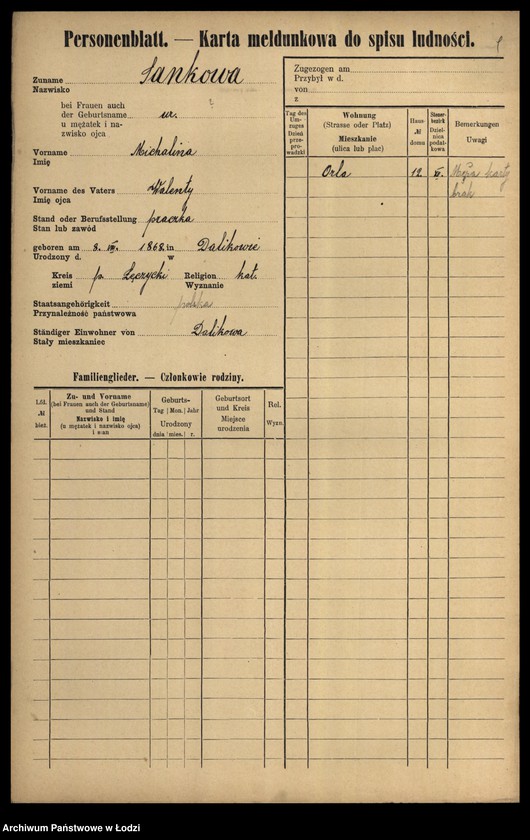 Personenblatt. — Karta meldunkowa do spisu ludności.
Zuname Sankowa
Nazwisko
bei Frauen auch
der Geburtsname ur. ?
u mężatek i na-
zwisko ojca
Vorname Michalina
Imię
Vorname des Vaters Walenty
Imię ojca
Stand oder Berufsstellung praczka
Stan lub zawód
geboren am 8. VIII. 1868 in Dalikowie
Urodzony d. w
Kreis p. Łęczycki Religion kat.
ziemi Wyznanie
Staatsangehörigkeit polska
Przynależność państwowa
Ständiger Einwohner von Dalikowa
Stały mieszkaniec
Familienglieder. — Członkowie rodziny.
Lfd. № bież.
Zu- und Vorname
(bei Frauen auch der Geburtsname)
und Stand
Nazwisko i imię
(u mężatek i nazwisko ojca)
i stan
Geburts-
Tag Mon. Jahr
Urodzony
dnia mies. r.
Geburtsort
und Kreis
Miejsce
urodzenia
Rel.
Wyzn.
Zugezogen am
Przybył w d.
von
z
Tag des
Um-
zuges
Dzień
prze-
prowadzki
Wohnung
(Strasse oder Platz)
Mieszkanie
(ulica lub plac)
Haus
№
domu
Steuer-
bezirk
Dziel-
nica
podat-
kowa
Bemerkungen
Uwagi
Orla 12 Męża karty
brak
Archiwum Państwowe w Łodzi